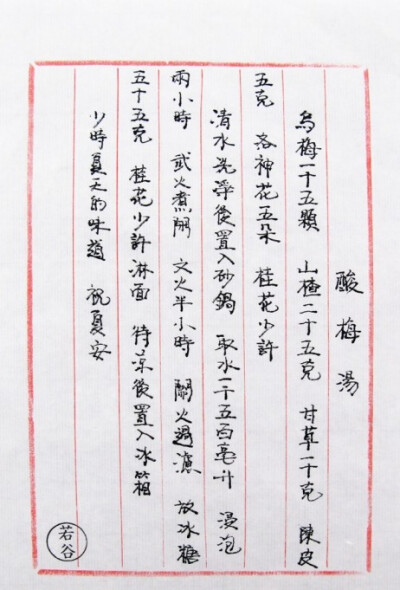 酸梅湯
烏梅一十五顆 山楂二十五克 甘草一十克 陳皮
五克 洛神花五朵 桂花少許
清水洗淨後置入砂鍋 取水一千五百毫升 浸泡
兩小時 武火煮開 文火半小時 關火過濾 放冰糖
五十五克 桂花少許淋面 待涼後置入冰箱
少時夏天的味道 祝夏安
若谷